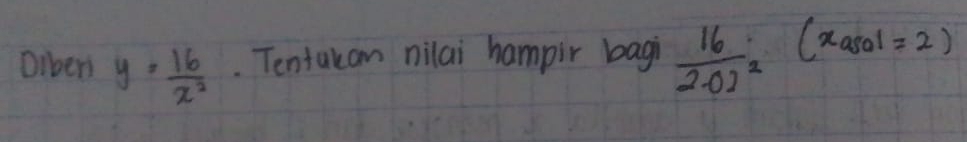 Diberi y = 16/x². Tentukan nilai hampir bagi 16/2.02². (x asal = 2)